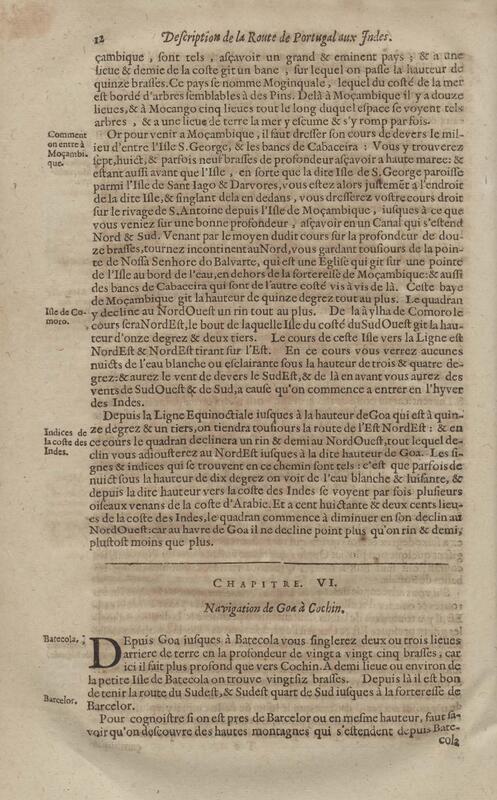 12 Description de la Route de Portugal aux Indes.
çambique, sont tels, asçavoir un grand & eminent pays; & a une
lieue & demie de la coste git un banc, sur lequel on passe la hauteur de
quinze brasses. Ce pays se nomme Moginquale, lequel du costé de la mer
est bordé d'arbres semblables à des Pins. Delà à Moçambique il y a douze
lieues, & à Mocango cinq lieues tout le long duquel espace se voyent tels
arbres, & a une lieue de terre la mer y escume & s'y romp par fois.
Comment
on entre à
Moçambi-
que.
Or pour venir a Moçambique, il faut dresser son cours de devers le mi-
lieu d'entre l'Isle S. George, & les bancs de Cabaceira: Vous y trouverez
sept, huict, & parfois neuf brasses de profondeur asçavoir a haute maree: &
estant aussi avant que l'Isle, en sorte que la dite Isle de S. George paroisse
parmi l'Isle de Sant Iago & Darvores, vous estez alors justemēt a l'endroit
de la dite Isle; & singlant dela en dedans, vous dresserez vostre cours droit
sur le rivage de S. Antoine depuis l'Isle de Moçambique, iusques à ce que
vous veniez sur une bonne profondeur, asçavoir en un Canal qui s'estend
Nord & Sud. Venant par le moyen dudit cours sur la profondeur de dou-
ze brasses, tournez incontinent au Nord, vous gardant tousiours de la poin-
te de Nossa Senhore do Balvarte, qui est une Eglise qui git sur une pointe
de l'Isle au bord de l'eau, en dehors de la forteresse de Moçambique: & aussi
des bancs de Cabaceira qui sont de l'autre costé vis à vis de là. Ceste baye
de Moçambique git la hauteur de quinze degrez tout au plus. Le quadran
Isle de Co-
moro.
y decline au NordOuest un rin tout au plus. De la à ylha de Comoro le
cours sera NordEst, le bout de laquelle Isle du costé du SudOuest git la hau-
teur d'onze degrez & deux tiers. Le cours de ceste Isle vers la Ligne est
NordEst & NordEst tirant sur l'Est. En ce cours vous verrez aucunes
nuicts de l'eau blanche ou esclairante sous la hauteur de trois & quatre de-
grez: & aurez le vent de devers le SudEst, & de là en avant vous aurez des
vents de SudOuest & de Sud, a cause qu'on commence a entrer en l'hyver
des Indes.
Indices de
la coste des
Indes.
Depuis la Ligne Equinoctiale iusques à la hauteur de Goa qui est à quin-
ze degrez & un tiers, on tiendra tousiours la route de l'Est NordEst: & en
ce cours le quadran declinera un rin & demi au NordOuest, tout lequel de-
clin vous adiousterez au NordEst iusques à la dite hauteur de Goa. Les si-
gnes & indices qui se trouvent en ce chemin sont tels: c'est que parfois de
nuict sous la hauteur de dix degrez on voit de l'eau blanche & luisante, &
depuis la dite hauteur vers la coste des Indes se voyent par fois plusieurs
oiseaux venans de la coste d'Arabie. Et a cent huictante & deux cents lieu-
es de la coste des Indes, le quadran commence à diminuer en son declin au
NordOuest: car au havre de Goa il ne decline point plus qu'on rin & demi,
plustost moins que plus.
CHAPITRE. VI.
Navigation de Goa à Cochin.
Batecola.
DEpuis Goa iusques à Batecola vous singlerez deux ou trois lieues
arriere de terre en la profondeur de vingt a vingt cinq brasses, car
ici il fait plus profond que vers Cochin. A demi lieue ou environ de
la petite Isle de Batecola on trouve vingt siz brasses. Depuis là il est bon
de tenir la route du Sudest, & Sudest quart de Sud iusques à la forteresse de
Barcelor.
Barcelor.
Pour cognoistre si on est pres de Barcelor ou en mesme hauteur, faut sa-
voir qu'on descouvre des hautes montagnes qui s'estendent depuis Bate-
cola